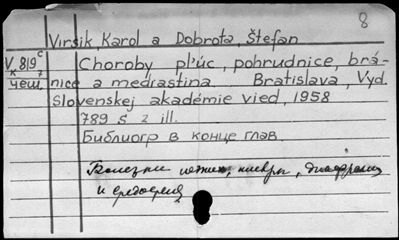 8
Virsik, Karol a Dobrota, Štefan
V 819 c Choroby pľúc, pohrudnice, brá-
к 7
чеш. nice a mediastina Bratislava, Vyd.
Slovenskej akadémie vied, 1958
789 s 2 ill.
Библиогр в конце глав
Болезни легких, плевры, диафрагмы
и средостения